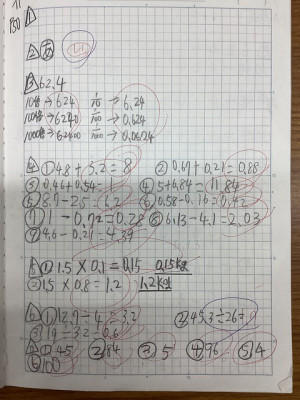 P.50
1
2 あ
3 62.4
10倍→624 1/10→6.24
100倍→6240 1/100→0.624
1000倍→62400 1/1000→0.0624
4 ①4.8+3.2=8 ②0.67+0.21=0.88
③0.46+0.54=1 ④5+6.84=11.84
⑤8.7-2.5=6.2 ⑥0.58-0.16=0.42
⑦1-0.72=0.28 ⑧6.13-4.1=2.03
⑨4.6-0.21=4.39
5 ①1.5×0.1=0.15 0.15kg
②1.5×0.8=1.2 1.2kg
6 ①12.7÷4=3.2 ②45.3÷26=
③19÷32=0.6
①45 ②84 ③5 ④96 ⑤4
⑥100